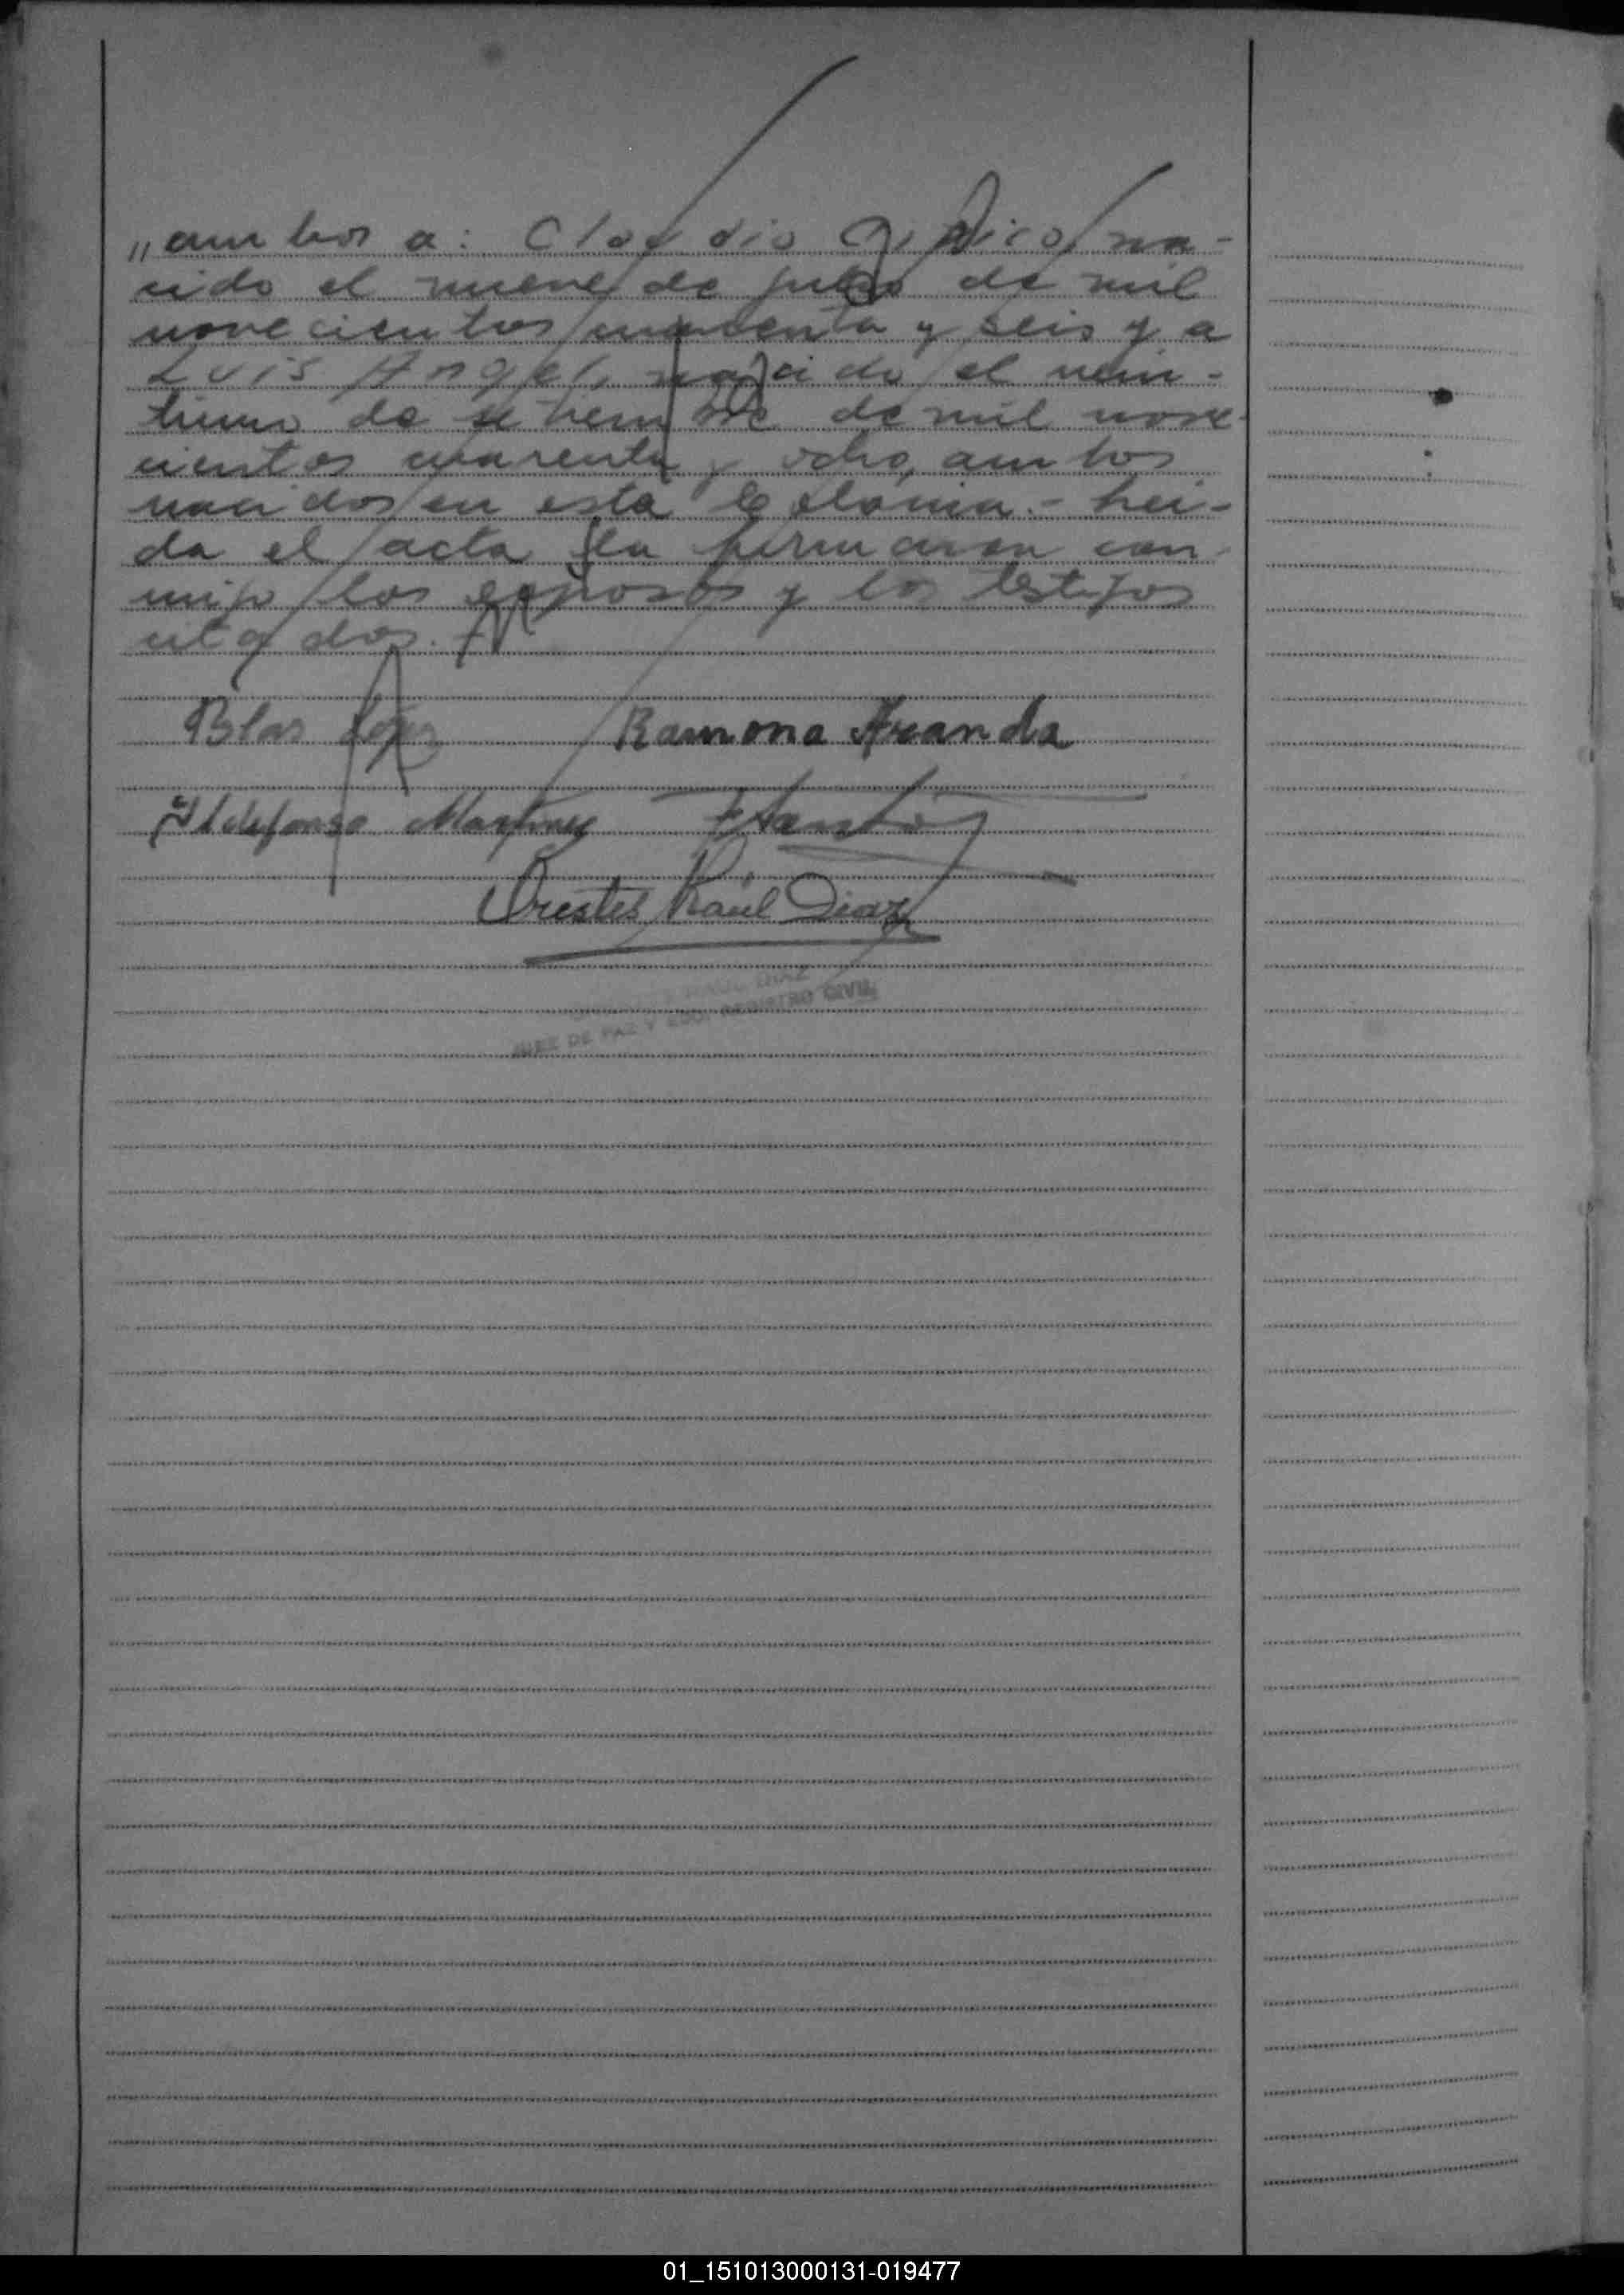 „ambos a: Claudio na-
cido el nueve de julio de mil
novecientos cuarenta y seis y a
Luis Angel, nacido el vein-
tiuno de setiembre de mil nove-
cientos cuarenta y ocho, ambos
nacidos en esta Colonia.- Lei-
da el acta la firmaron con-
migo los esposos y los testigos
citados.-
Blas López Ramona Aranda
Ildefonso Martinez
Orestes Raúl Diaz
RAUL DIAZ
JUEZ DE PAZ Y REGISTRO CIVIL
01_151013000131-019477